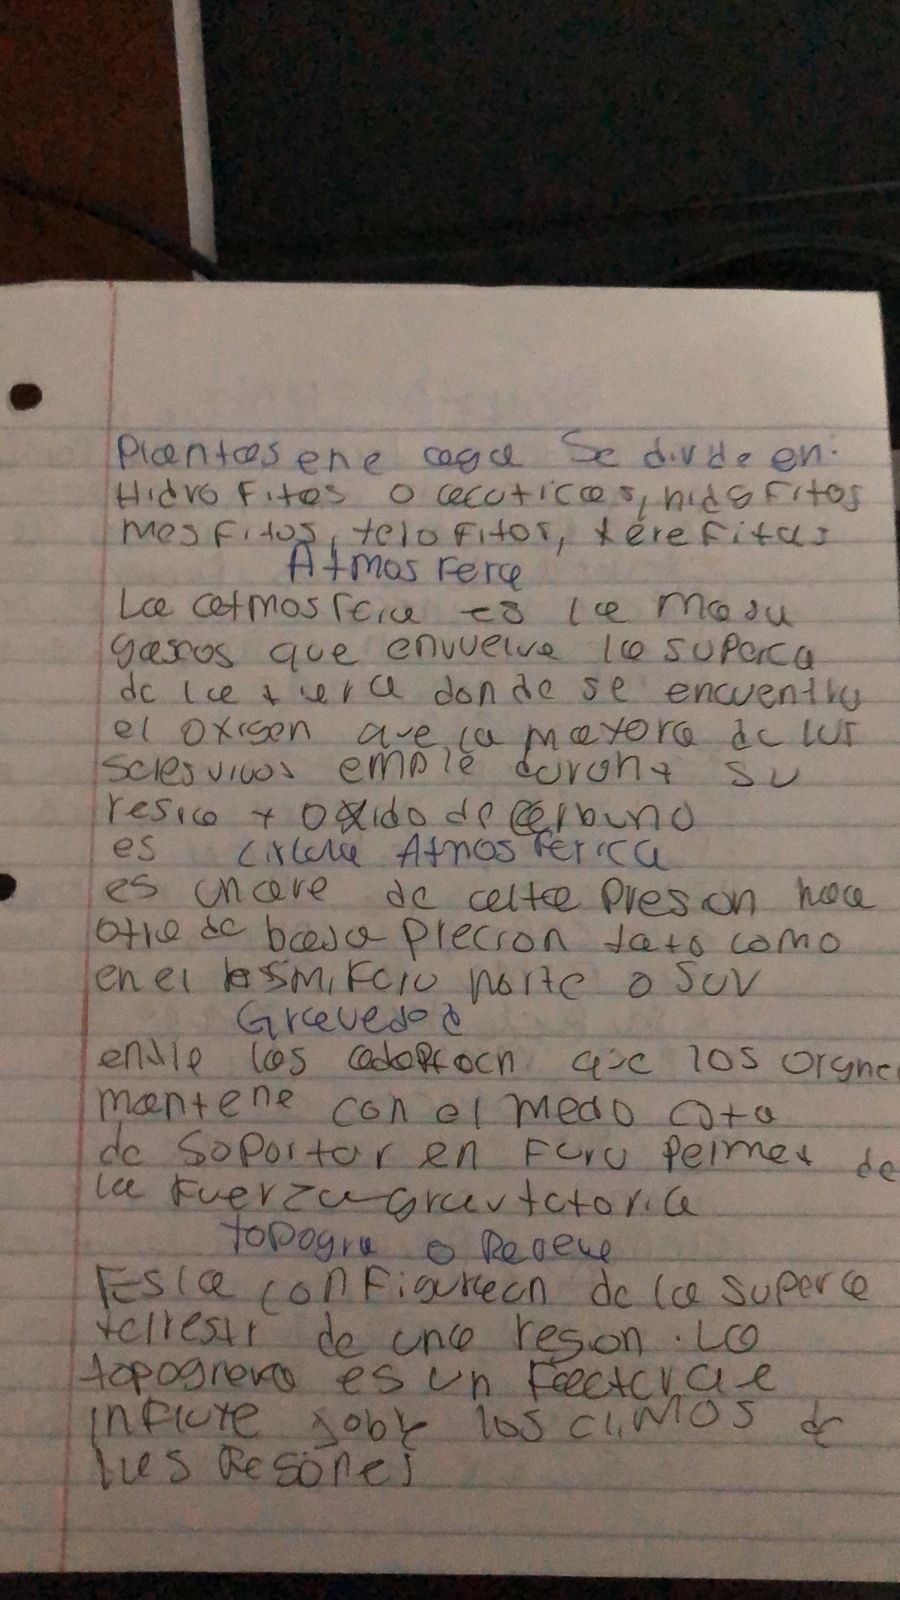 Plantas ene caga Se divde en:
Hidro Fitos o acuticas, hidofitos
mesfitos, telofitos, terefitas
Atmosfera
La atmosfera es la masa
gasos que envuelve la superca
de la tiera donde se encuentra
el oxigen que la mayora de los
seresvivos emple durant su
y oxido de carbuno
es Atmosferica
es un are de alta presion haca
otra de baja precion tato como
en el norte o Sur
Gravedad
los que los
mantene con el medo
de Soportar en
la Fuerza gravtatorica
topogra o
Es la configuracn de la superca
terrestr de una region. La
topograva es un Factor que
influye sobre los climas de
las Regones